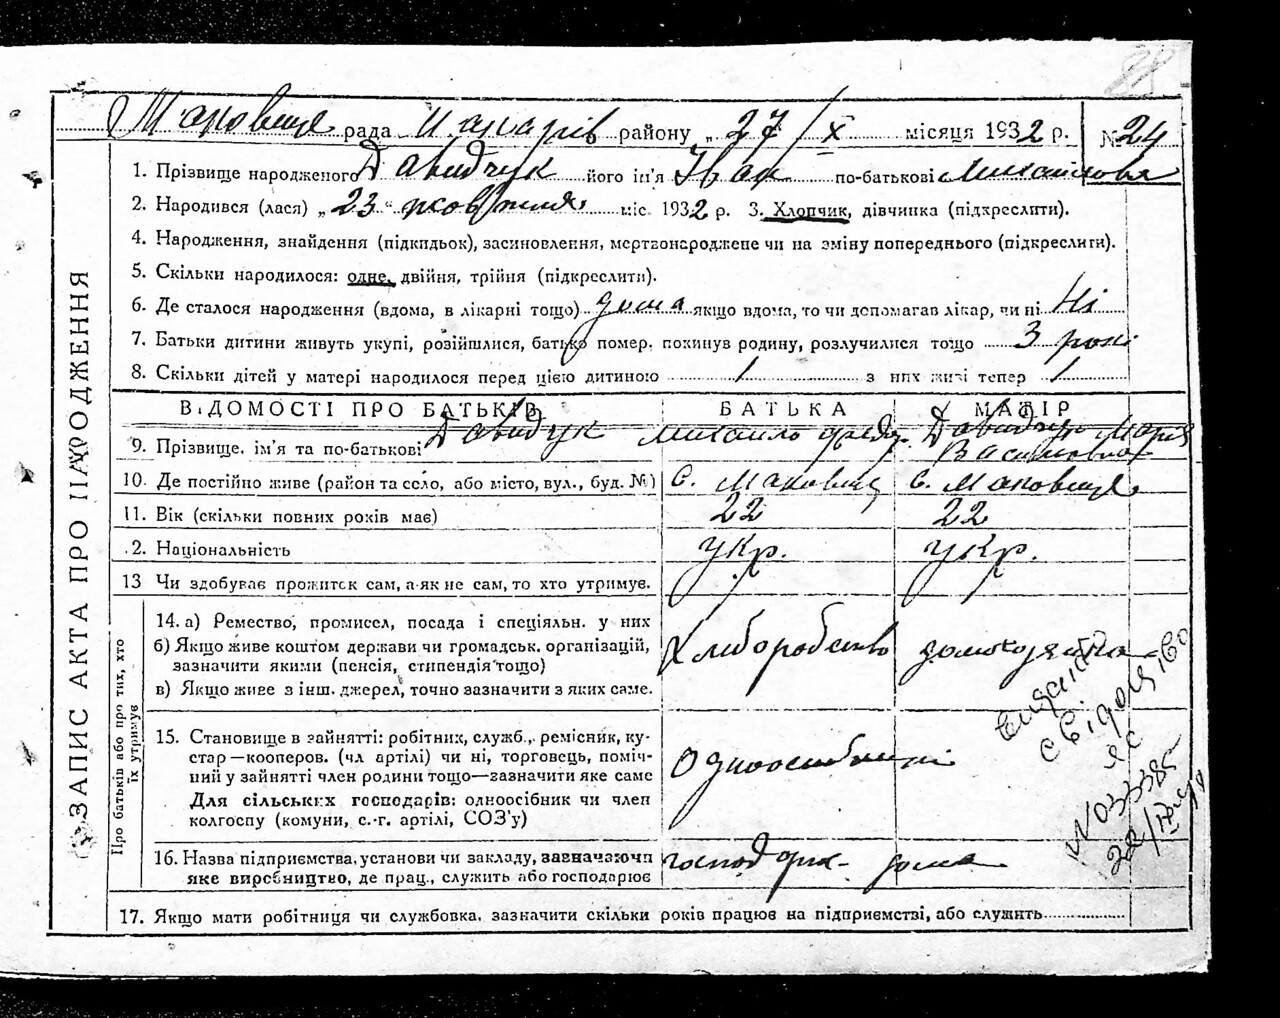 88
Маковище рада Макарів району „ 27 / X місяця 1932 р. № 24
1. Прізвище народженого Давидчук його ім'я Іван по-батькові Михайлович
2. Народився (лася) „ 23 " жовтня міс. 1932 р. 3. Хлопчик, дівчинка (підкреслити).
4. Народження, знайдення (підкидьок), засиновлення, мертвонароджене чи на зміну попереднього (підкреслити).
5. Скільки народилося: одне, двійня, трійня (підкреслити).
6. Де сталося народження (вдома, в лікарні тощо) дома якщо вдома, то чи допомагав лікар, чи ні Ні
7. Батьки дитини живуть укупі, розійшлися, батько помер, покинув родину, розлучилися тощо 3 роки
8. Скільки дітей у матері народилося перед цією дитиною 1 з них живі тепер 1
ВІДОМОСТІ ПРО БАТЬКІВ БАТЬКА МАТІР
9. Прізвище, ім'я та по-батькові Давидчук Михайло Давидчук Марія Василовна
10. Де постійно живе (район та село, або місто, вул., буд. №) С. Маковищ С. Маковище
11. Вік (скільки повних років має) 22 22
12. Національність укр. укр.
13 Чи здобуває прожиток сам, а як не сам, то хто утримує.
14. а) Ремество, промисел, посада і спеціяльн. у них
б) Якщо живе коштом держави чи громадськ. організацій,
зазначити якими (пенсія, стипендія тощо)
в) Якщо живе з інш. джерел, точно зазначити з яких саме.
Хліборобство
15. Становище в зайнятті: робітник, служб., ремісник, ку-
стар—кооперов. (чл артілі) чи ні, торговець, поміч-
ний у зайнятті член родини тощо—зазначити яке саме
Для сільських господарів: одноосібник чи член
колгоспу (комуни, с.-г. артілі, СОЗ'у)
Одноосібники
16. Назва підприємства, установи чи закладу, зазначаючи
яке виробництво, де прац., служить або господарює
господорк- дома
17. Якщо мати робітниця чи службовка, зазначити скільки років працює на підприємстві, або служить
ЗАПИС АКТА ПРО НАРОДЖЕННЯ
Про батьків або про тих, хто
їх утримує
N 033385